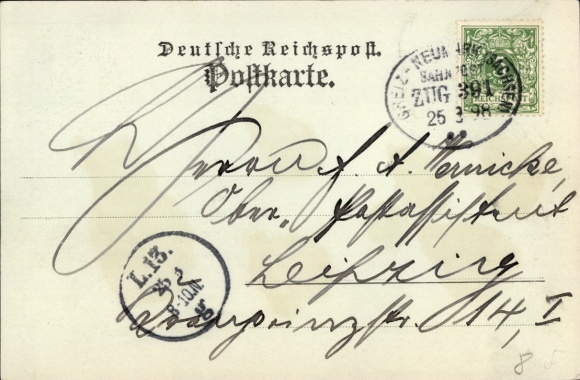 Deutsche Reichspost.
Postkarte.
GREIZ-NEUMARK SACHSEN
BAHNPOST
ZUG 391
25 3 98
REICHSPOST
Herrn A. Wernicke,
Ober-Postassistent
Leipzig
Kronprinzstr. 14, I
L.13.
8-10.N.
98
8